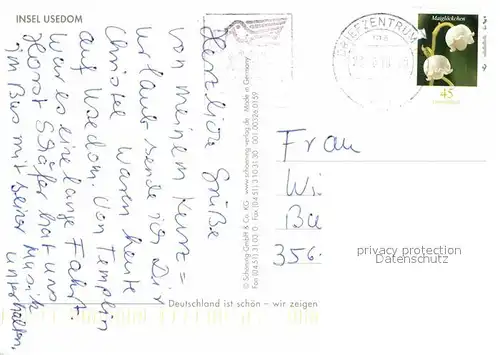 INSEL USEDOM
Herzliche Grüße
von meinem Kurz=
urlaub sende ich Dir
Christel waren heute
auf Usedom. Von Templin
war es eine lange Fahrt.
Horst Schäfer hat uns
im Bus mit seiner Musik
unterhalten.
© Schöning GmbH & Co. KG · www.schoening-verlag.de · Made in Germany
Fax (04 51) 3 10 31 30
001.00326.0159
Deutschland ist schön – wir zeigen
BRIEFZENTRUM
Maiglöckchen
45
Frau
Wi
Be
356
privacy protection
Datenschutz